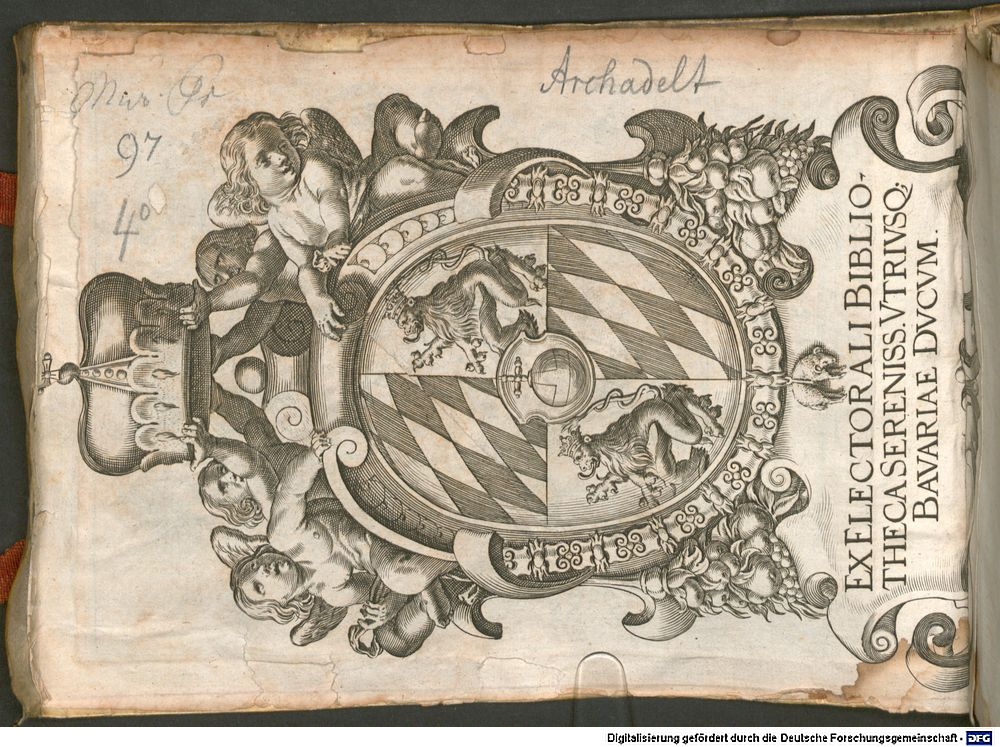 Archadelt
Mus. Pr
97
4°
EX ELECTORALI BIBLIO-
THECA SERENISS. VTRIVSQ;
BAVARIAE DVCVM.
Digitalisierung gefördert durch die Deutsche Forschungsgemeinschaft - DFG